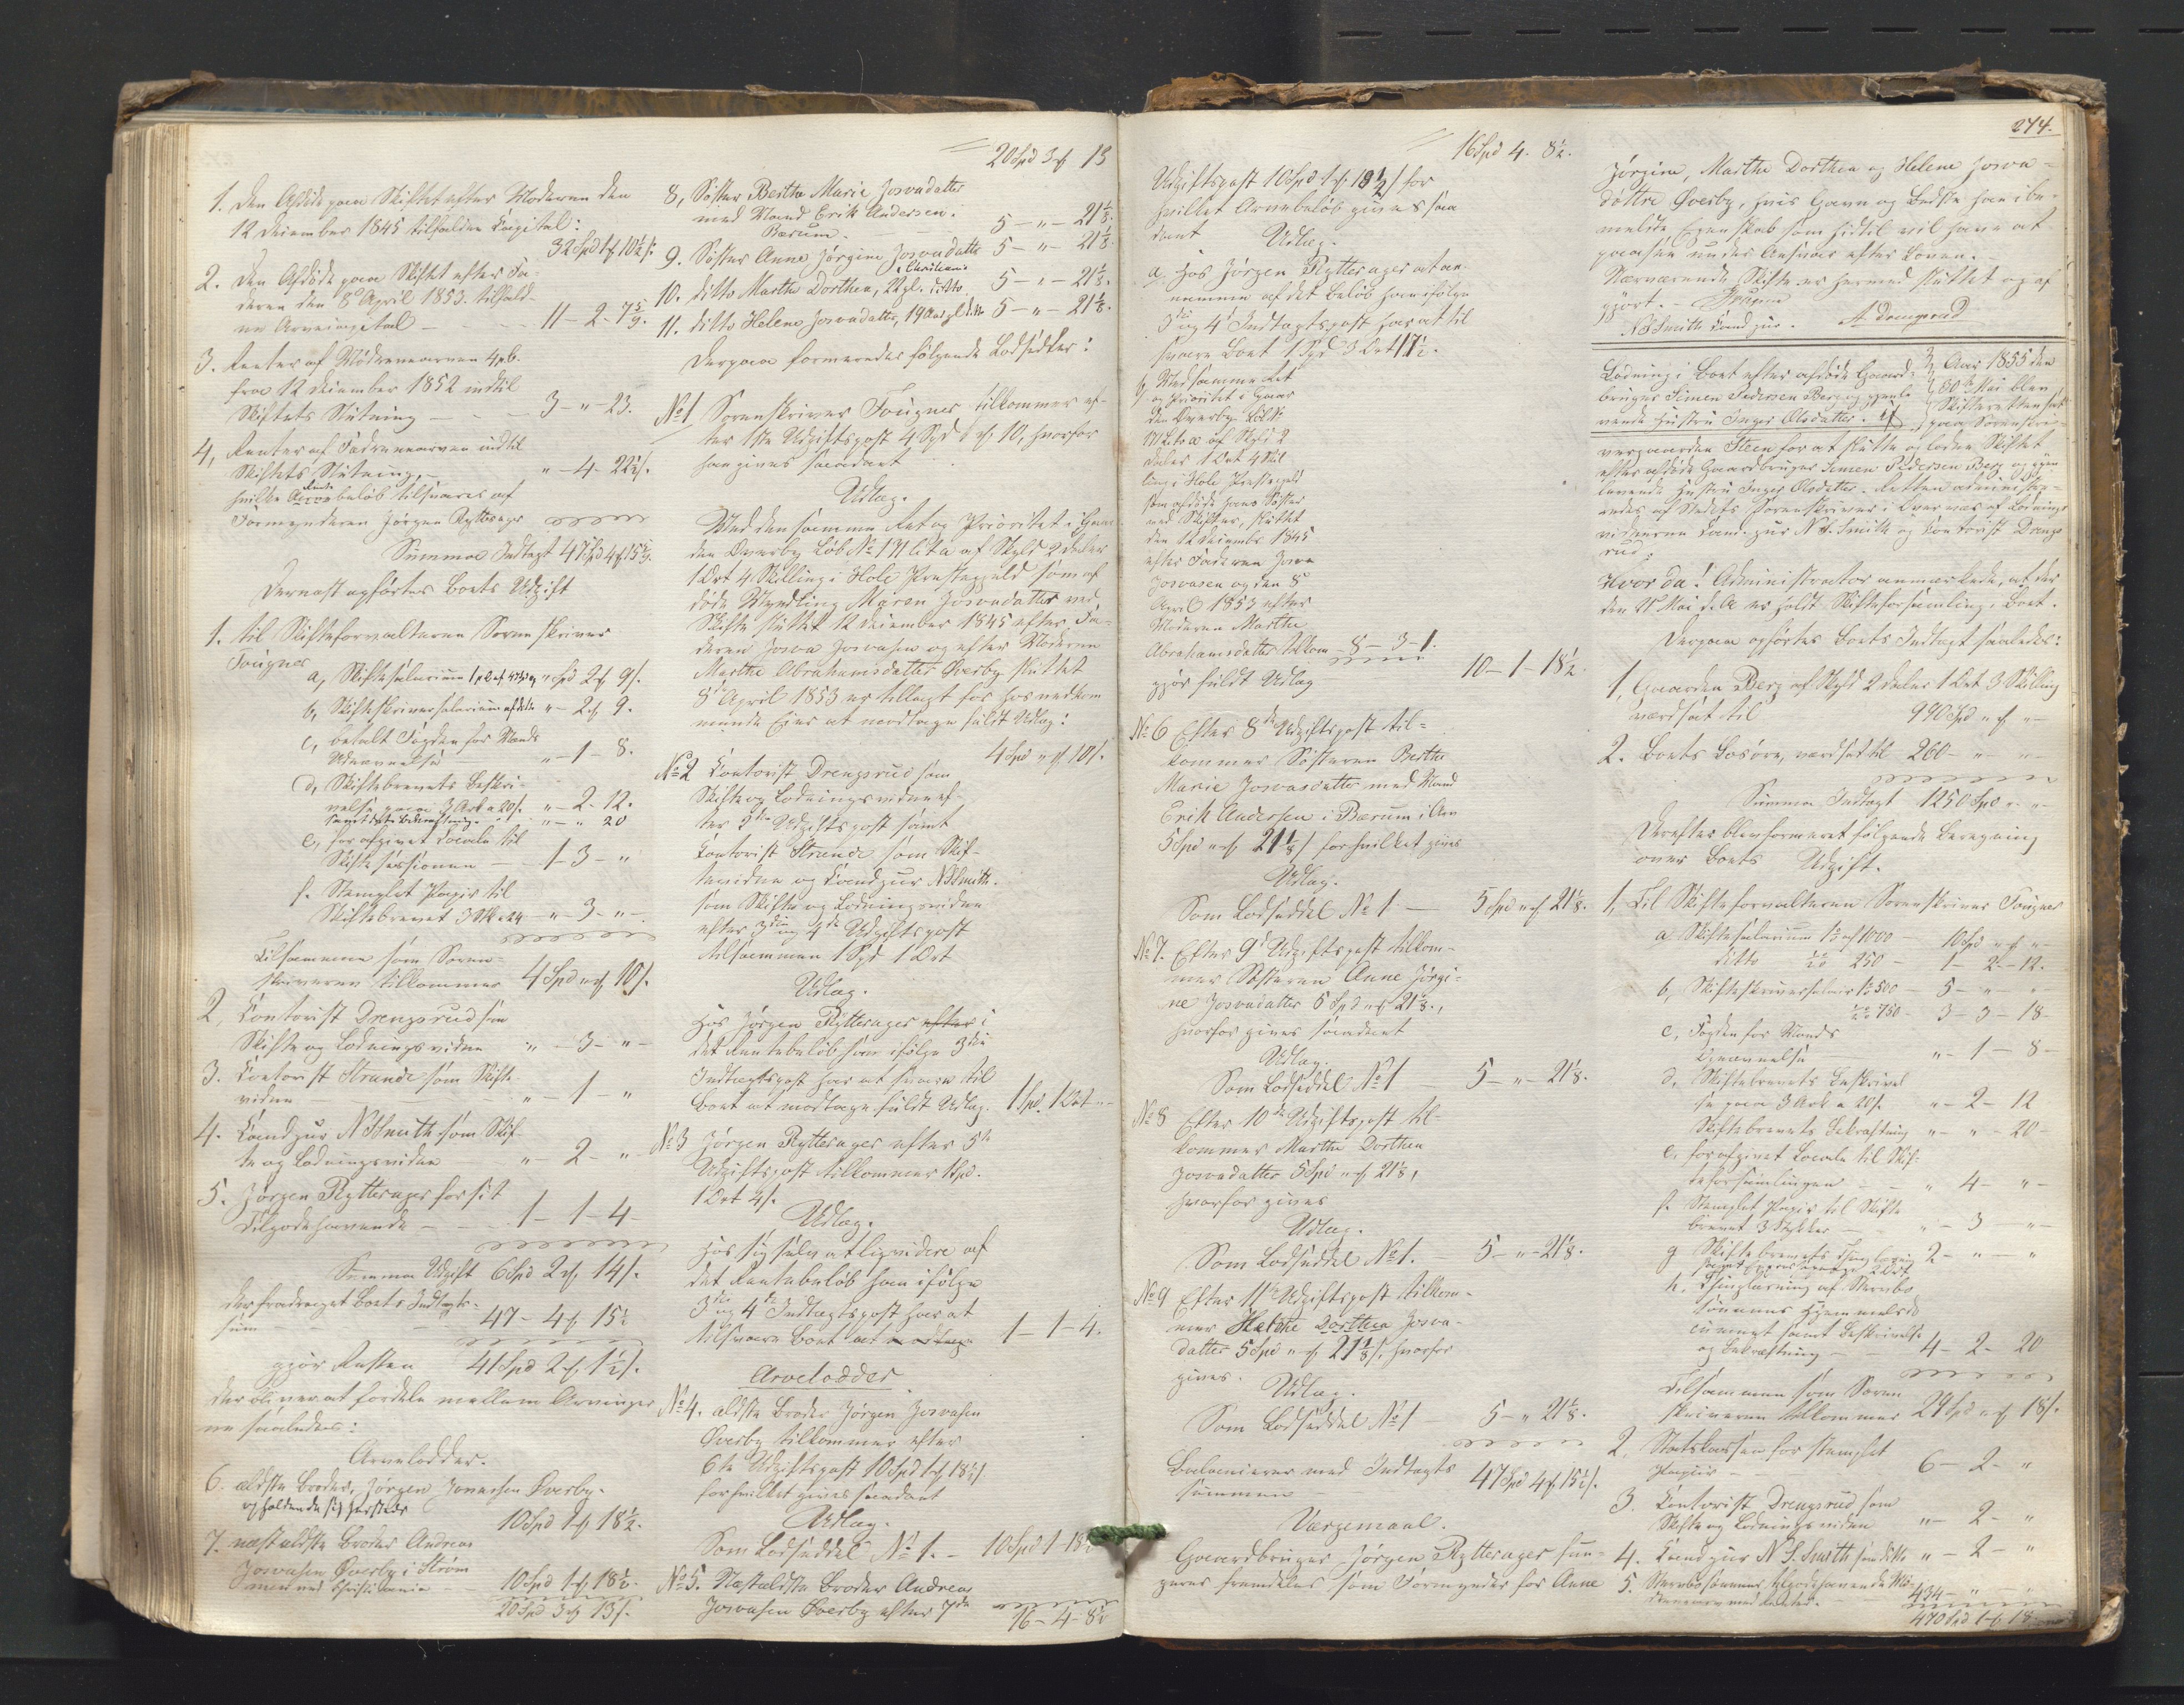 1. den Afdøde paa Skiftet efter Moderen den
12 December 1845 tilfalden Capital:
32 Spd 1 ort 10½ s.
2. den Afdøde paa Skiftet efter Fa-
deren den 8de April 1853 tilfald-
ne Arvecapital — 11 - 2 - 7 5/9.
3. Renter af Mødrenearven 4 pCt.
fra 12 December 1852 indtil
Skiftets Slutning — 3 - " - 23.
4, Renter af Fædrenearven indtil
Skiftets Slutning, " - 4 - 22½ s.
hvilke Rentebeløb tilsvares af
Formynderen Jørgen Rytterager
Summa Indtægt 47 Spd 4 ort 15
Dernæst opførtes Boets Udgift
1. til Skifteforvalteren Sorenskriver
Fougner
a, Skiftesalarium " Spd 2 ort 9 s.
b, Skifteskriversalarium af dito " - 2 ort 9.
c, betalt Fogden for Mænds
Udnævnelse " - 1 - 8.
d, Skiftebrevets Beskri-
velse paa 3 Ark a 20 s. " - 2 - 12.
samt dets Bekræftning " - " 20
e, for afgivet Locale til
Skiftesessionen — 1 - 3 - "
f. Stemplet Papir til
Skiftebrevet 3 Stk a 24 — " - 3 - " -
Tilsammen som Soren-
skriveren tilkommer 4 Spd " ort 10 s.
2, Contorist Drengsrud som
Skifte og Lodningsvidne " - 3 - " -
3. Contorist Strande som Skifte-
vidne — " - 1 - "
4. Cand jur N S Smith som Skif-
te og Lodningsvidne " - 2 - "
5. Jørgen Rytterager for sit
Tilgodehavende — 1 - 1 - 4 -
Summa Udgift 6 Spd 2 ort 14 s.
der fradraget Boets Indtægts-
sum — 47 - 4 ort 15½
gjør Resten 41 Spd 2 ort 1½ s.
der bliver at fordele mellem Arvinger-
ne saaledes:
Arvelodder.
6. ældste Broder, Jørgen Josvasen Øverby
opholdende sig hersteds
10 Spd 1 ort 18½.
7. næstældste Broder Andreas
Josvasen Øverby i Strøm-
men ved Christiania — 10 Spd 1 ort 18½.
20 Spd 3 ort 13 s.
20 Spd 3 ort 13
8, Søster Berthe Marie Josvadatter
med Mand Erik Andersen
Bærum. 5 - " - 21⅛.
9. Søster Anne Jørgine Josvadatter 5 - " - 21⅛.
i Christiania
10. ditto Marthe Dorthea, ditto 5 - " - 21⅛.
11. ditto Helene Josvadatter, 19 Aar gl ditto 5 - " - 21⅛.
Derpaa formeredes følgende Lodsedler:
No 1 Sorenskriver Fougner tilkommer ef-
ter 1ste Udgiftspost 4 Spd " ort 10, hvorfor
han gives saadant
Udlæg.
Med den samme Ret og Prioritet i Gaar-
den Øverby Løb No 171 Lit a af Skyld 2 Daler
1 Ort 4 Skilling i Hole Præstegjeld som af-
døde Myndling Maren Josvadatter ved
Skifte sluttet 12 December 1845 efter Fa-
deren Josva Josvasen og efter Moderen
Marthe Abrahamsdatter Øverby sluttet
8de April 1853 er tillagt hos vedkom-
mende Eier at modtage fuldt Udlæg:
4 Spd " ort 10 s.
No 2 Contorist Drengsrud som
Skifte og Lodningsvidne ef-
ter 2den Udgiftspost samt
Contorist Strande som Skif-
tevidne og Cand jur N S Smith
som Skifte og Lodningsvidne
efter 3die og 4de Udgiftspost
tilsammen 1 Spd 1 Ort
Udlæg.
Hos Jørgen Rytterager efter i
det Rentebeløb som ifølge 3die
Indtægtspost har at svare til
Boet at modtage fuldt Udlæg. 1 Spd. 1 Ort "-
No 3 Jørgen Rytterager efter 5te
Udgiftspost tilkommer 1 Spd.
1 Ort 4 s.
Udlæg.
Hos sig selv at liqvidere af
det Rentebeløb han ifølge
3die og 4de Indtægtspost har at
tilsvare Boet 1 - 1 - 4.
Arvelodder
No 4. ældste Broder Jørgen Josvasen
Øverby tilkommer efter
6te Udgiftspost 10 Spd 1 ort 18½ s.
for hvilket gives saadant
Udlæg.
Som Lodseddel No 1. — 10 Spd 1 - 18½
No 5. Næstældste Broder Andreas
Josvasen Øverby efter 7de
16 - 4 - 8½
16 Spd 4. 8½.
Udgiftspost 10 Spd 1 ort 18½ s for
hvilket Arvebeløb gives saa-
dant Udlæg.
a. Hos Jørgen Rytterager at an-
namme af det Beløb han ifølge
3die og 4de Indtægtspost har at til
svare Boet 1 Spd 3 Ort 17½.
b, Med samme Ret
og Prioritet i Gaar
den Øverby Løb No
171 Lit a af Skyld 2
Daler 1 Ort 4 Skil
ling i Hole Præstegjeld
som afdøde hans Søster
ved Skifter, sluttet
den 12 December 1845
efter Faderen Josva
Josvasen og den 8de
April 1853 efter
Moderen Marthe
Abrahamsdatter tilkom — 8 - 3 - 1.
gjør fuldt Udlæg 10 - 1 - 18½.
No 6 Efter 8de Udgiftspost til-
kommer Søsteren Berthe
Marie Josvasdatter med Mand
Erik Andersen i Bærum i Arv
5 Spd " ort 21⅛ s for hvilket gives
Udlæg.
Som Lodseddel No 1 — 5 Spd " ort 21⅛.
No 7. Efter 9de Udgiftspost tilkom-
mer Søsteren Anne Jørgi-
ne Josvadatter 5 Spd " ort 21⅛.,
hvorfor gives saadant
Udlæg.
Som Lodseddel No 1 5 - " - 21⅛.
No 8 Efter 10de Udgiftspost til-
kommer Marthe Dorthea
Josvadatter 5 Spd " ort 21⅛,
hvorfor gives
Udlæg.
Som Lodseddel No 1. 5 - " - 21⅛.
No 9 Efter 11te Udgiftspost tilkom-
mer Dorthea Josva-
datter 5 Spd " ort 21⅛ s, hvorfor
gives.
Udlæg.
Som Lodseddel No 1 5 - " 21⅛.
Balancerer med Indtægts
summen — 47 Spd 4 ort 15½ s.
Værgemaal.
Gaardbruger Jørgen Rytterager fun-
gerer fremdeles som Formynder for Anne
274.
Jørgine, Marthe Dorthea og Helene Josva-
døttre Øverby, hvis Gavn og Bedste han i be-
meldte Egenskab som hidtil vil have at
paasee under Ansvar efter Loven.
Nærværende Skifte er hermed sluttet og af-
gjort. — Fougner
N S Smith Cand jur. A Drengsrud
Lodning i Boet efter afdøde Gaard-
bruger Simen Pedersen Berg og gjenle-
vende Hustru Inger Olsdatter.
Aar 1855 den
30te Mai blev
Skifteretten sat
paa Sorenskri-
vergaarden Steen for at slutte og lodne Skiftet
efter afdøde Gaardbruger Simen Pedersen Berg og gjen-
levende Hustru Inger Olsdatter. Retten administre-
redes af Stedets Sorenskriver i Overvær af Lodnings-
vidnerne Cand. jur N S. Smith og Contorist Drengs-
rud:
Hvor da! Administrator anmærkede, at der
den Mai d. A er holdt Skifteforsamling i Boet.
Derpaa opførtes Boets Indtægt saaledes:
1, Gaarden Berg af Skyld 2 Daler 1 Ort 3 Skilling
værdsat til 990 Spd " ort " -
2. Boets Løsøre, værdsat til 260 - " " -
Summa Indtægt 1250 Spd " " -
Derefter blev formeret følgende Beregning
over Boets Udgift.
1, Til Skifteforvalteren Sorenskriver Fougner
a Skiftesalarium af 1000 — 10 Spd " ort " -
ditto 250 — 1 - 2 - 12.
b, Skifteskriversalair 500 — 5 - " - "
750 — 3 - 3 - 18 -
c, Fogden for Mænds
Udnævnelse " - 1 - 8 -
d, Skiftebrevets Beskrivel
se paa 3 Ark a 20 s. " - 2 - 12
Skiftebrevets Bekræftning " - " - 20 -
e. for afgivet Locale til Skif-
teforsamlingen — " 4 - " -
f. Stemplet Papir til Skifte
brevet 3 Stykker — " - 3 - " -
g Skiftebrevets Thinglæsning 2 - " - "
h. Thinglæsning af Stervbo
og Bekræftning — 4 - 2 - 20
Tilsammen som Soren
skriveren tilkommer 29 Spd " ort 18 s.
2, Statskassen for stemplet
Papiir — 6 - 2 - "
3. Contorist Drengsrud som
Skifte og Lodningsvidne " - 2 - "
4. Cand jur N S. Smith som ditto " - 2 - "
5. Tilgodehavende
434 - " - "
470 Spd 1 ort 18